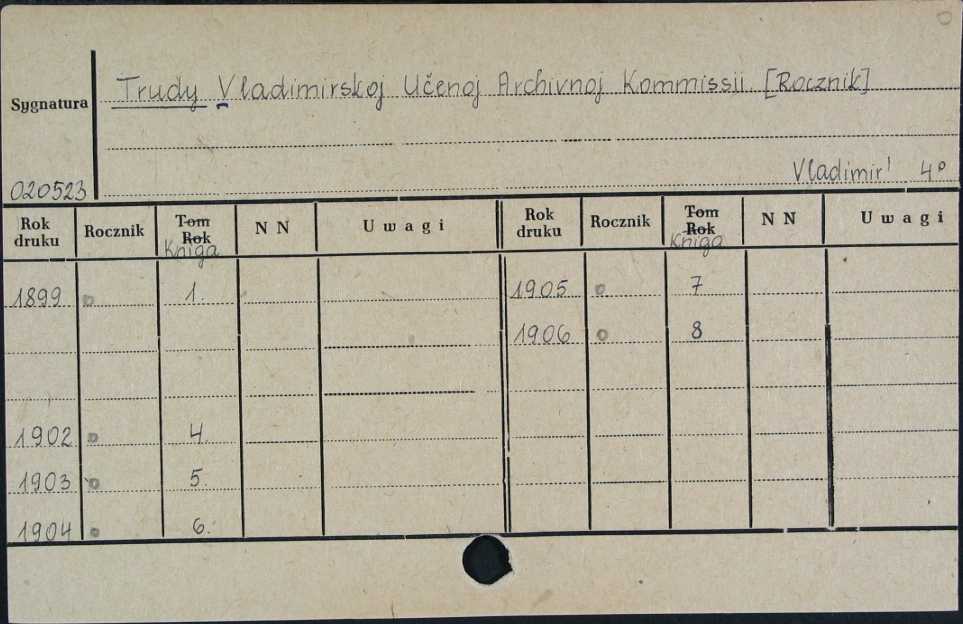 Trudy Vladimirskoj Učenoj Archivnoj Kommissii. [Rocznik]
Sygnatura
Vladimir' 4°
020523
Rok druku Rocznik Tom Rok Kniga N N Uwagi Rok druku Rocznik Tom Rok Kniga N N Uwagi
1899 1. 1905 7
1906 8
1902 4.
1903 5
1904 6.